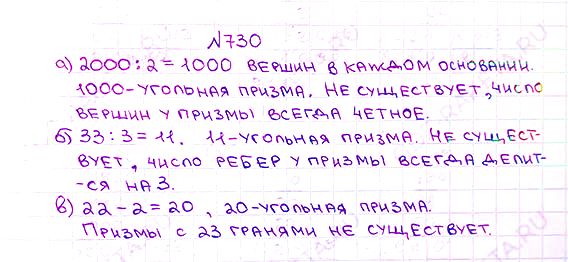 №730
а) 2000:2=1000 вершин в каждом основании.
1000-угольная призма. Не существует, число
вершин у призмы всегда четное.
б) 33:3=11. 11-угольная призма. Не сущест-
вует, число ребер у призмы всегда делит-
-ся на 3.
в) 22-2=20, 20-угольная призма.
Призмы с 23 гранями не существует.